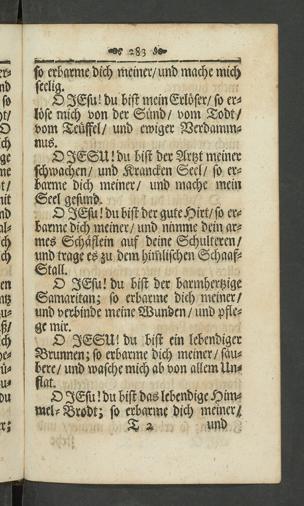 283
so erbarme dich meiner/ und mache mich
seelig.
O JEsu! du bist mein Erlöser/ so er-
löse mich von der Sünd/ vom Todt/
vom Teüffel/ und ewiger Verdamm-
nus.
O JESU! du bist der Artzt meiner
schwachen/ und Krancken Seel/ so er-
barme dich meiner/ und mache mein
Seel gesund.
O JEsu! du bist der gute Hirt/ so er-
barme dich meiner/ und nimme dein ar-
mes Schäflein auf deine Schulteren/
und trage es zu dem him̃lischen Schaaf-
Stall.
O JEsu! du bist der barmhertzige
Samaritan; so erbarme dich meiner/
und verbinde meine Wunden/ und pfle-
ge mir.
O JESU! du bist ein lebendiger
Brunnen; so erbarme dich meiner/ säu-
bere/ und wasche mich ab von allem Un-
flat.
O JEsu! du bist das lebendige Him-
mel-Brodt; so erbarme dich meiner/
T 2 und